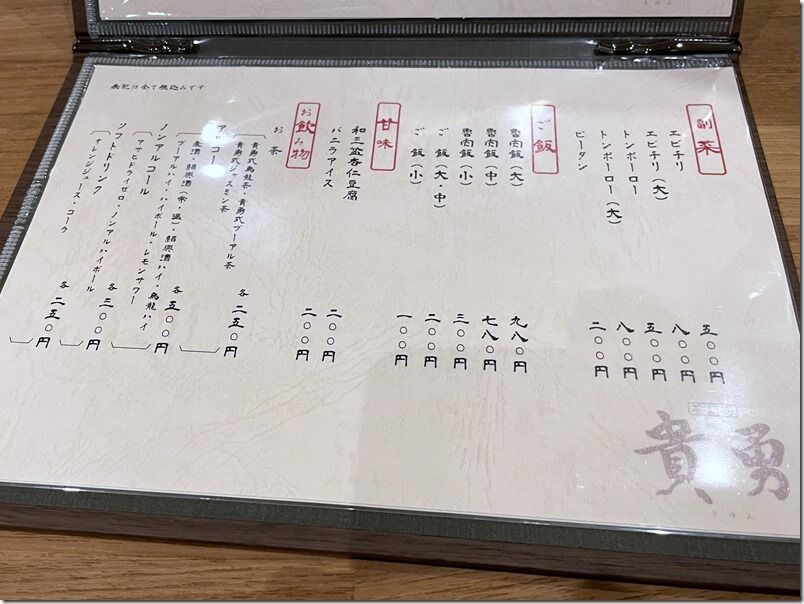 副菜
エビチリ 五〇〇円
エビチリ(大) 八〇〇円
トンポーロー 五〇〇円
トンポーロー(大) 八〇〇円
ピータン 二〇〇円
ご飯
魯肉飯(大) 九八〇円
魯肉飯(中) 七八〇円
魯肉飯(小) 三〇〇円
ご飯(大・中) 二〇〇円
ご飯(小) 一〇〇円
甘味
和三盆杏仁豆腐 二〇〇円
バニラアイス 二〇〇円
お飲み物
お茶
貴勇式烏龍茶・貴勇式プーアル茶
貴勇式ジャスミン茶 各二五〇円
アルコール
麦酒・紹興酒(常・温)・紹興酒ハイ・烏龍ハイ
プーアルハイ・ハイボール・レモンサワー 各五〇〇円
ノンアルコール
アサヒドライゼロ・ノンアルハイボール 各三〇〇円
ソフトドリンク
オレンジジュース・コーラ 各二五〇円
表記は全て税込みです
貴勇